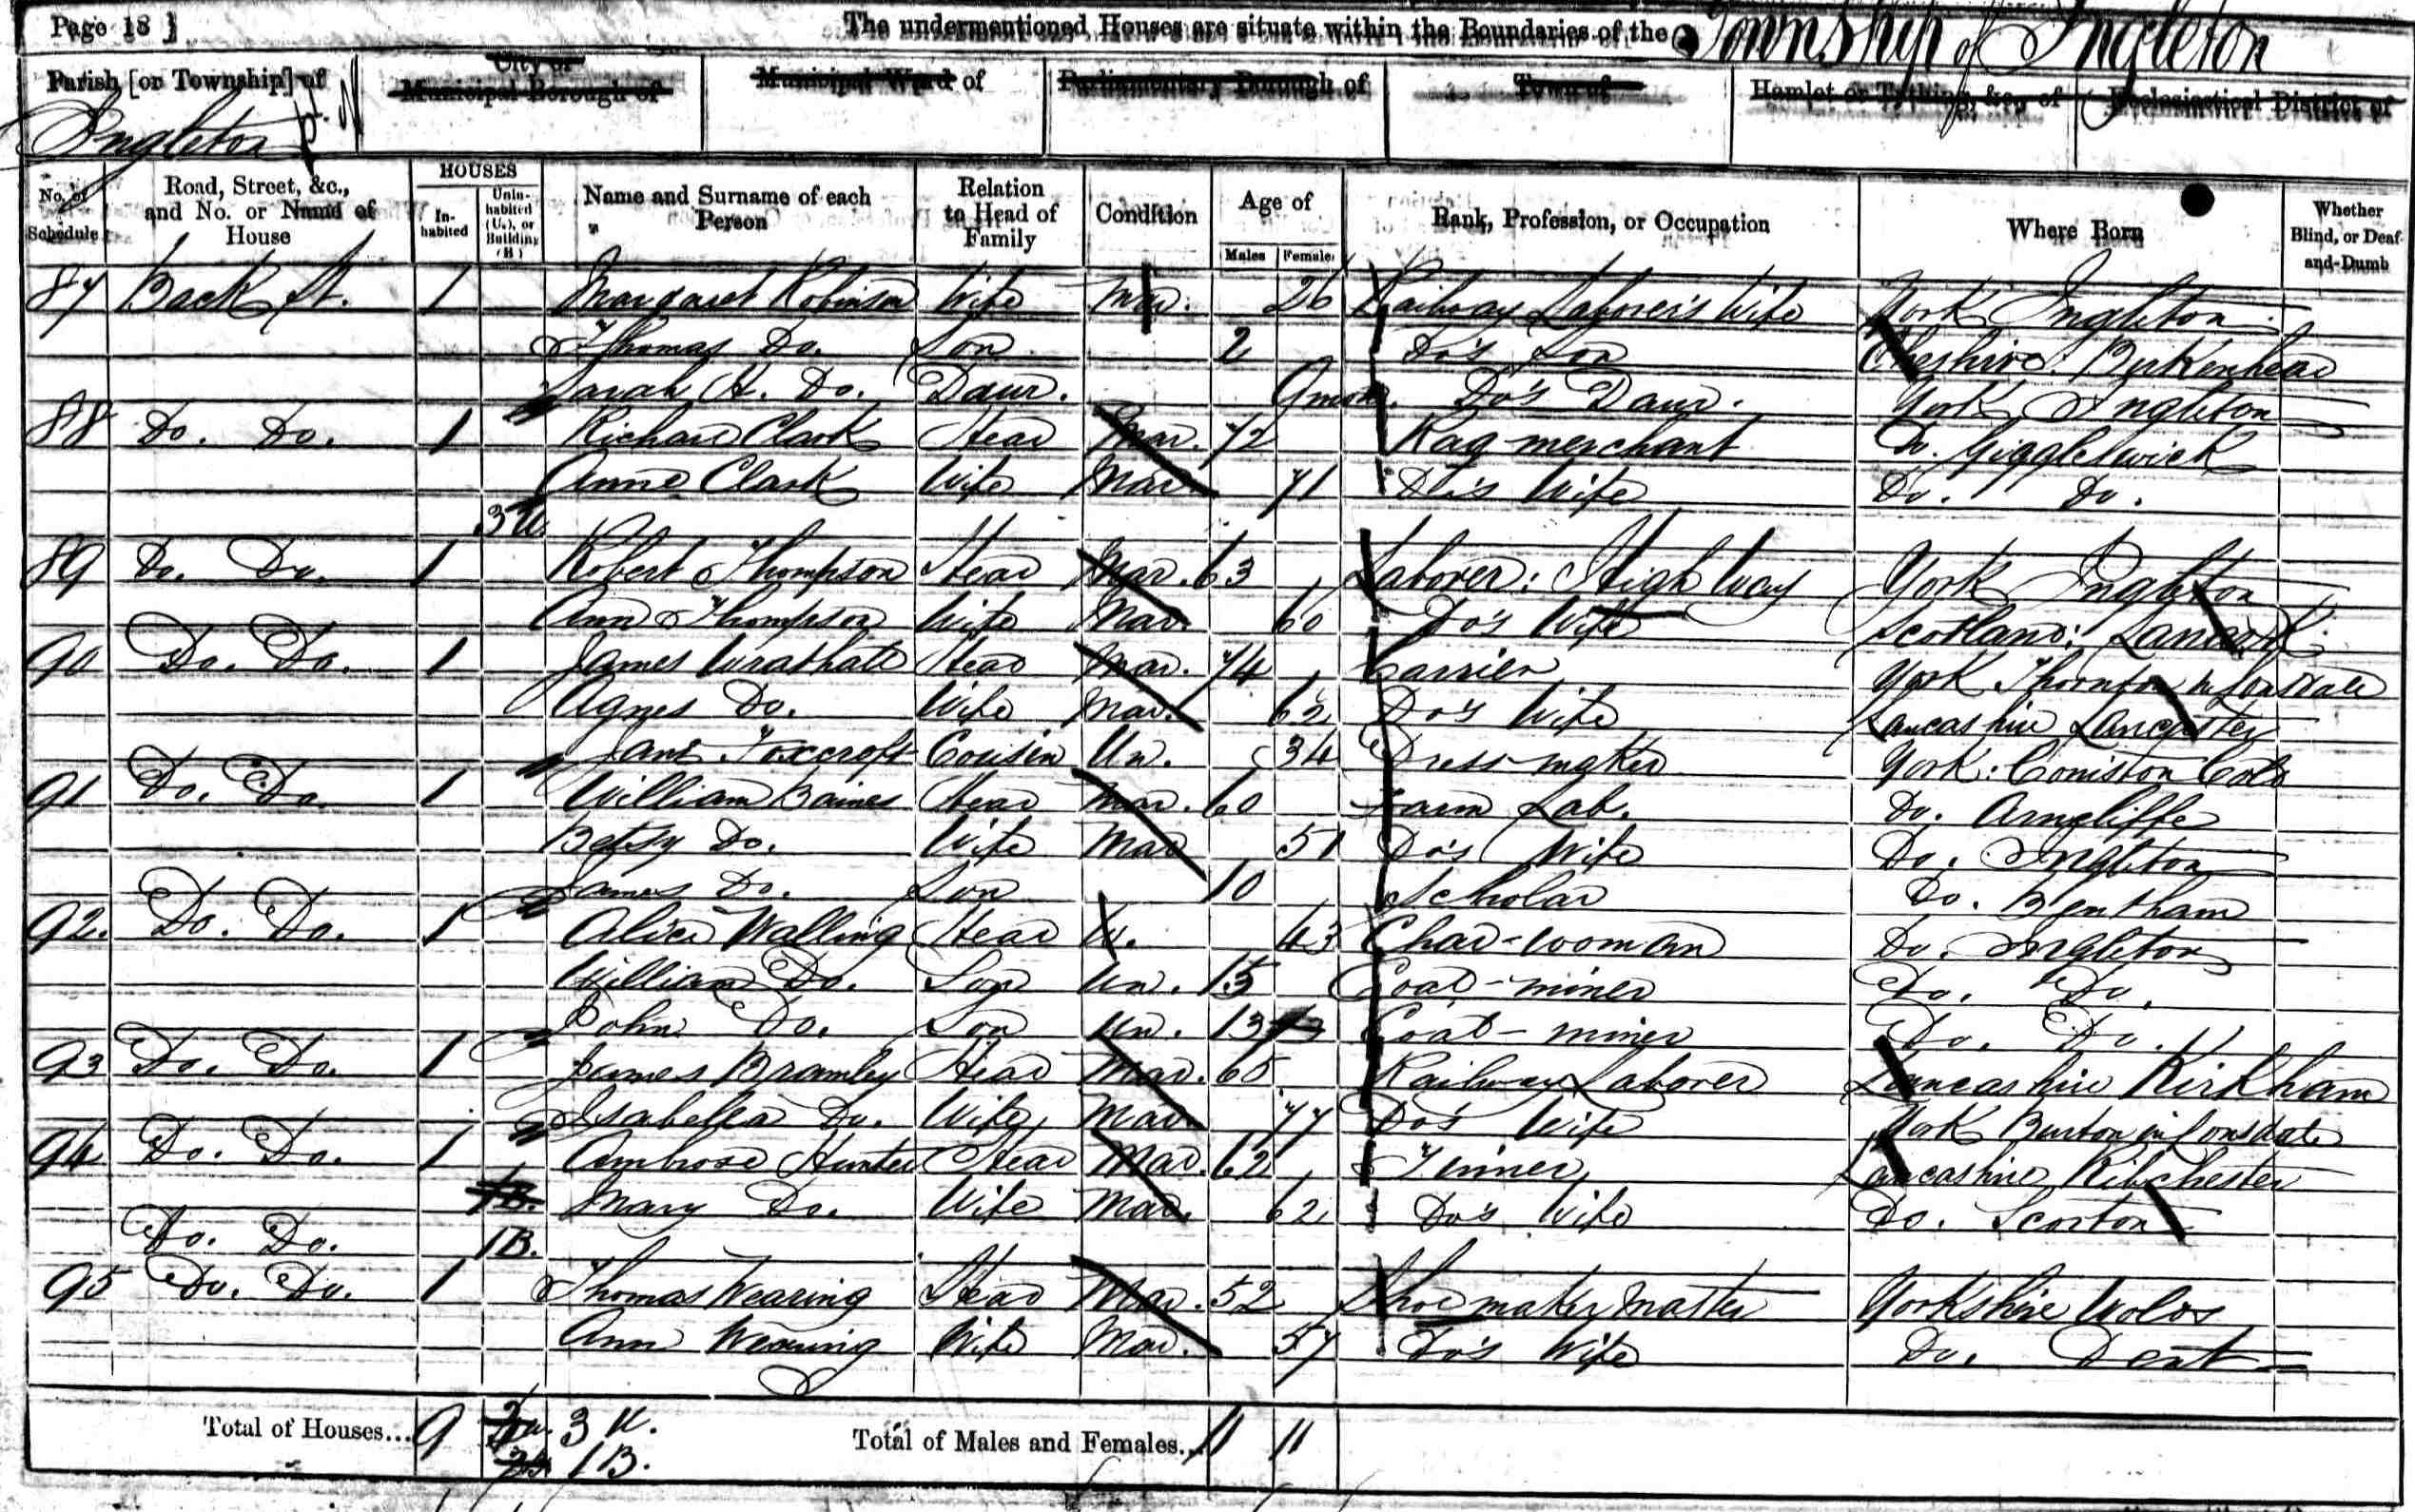 Page 18 ]
The undermentioned Houses are situate within the Boundaries of the Township of Ingleton
Parish [or Township] of
Ingleton pt.
City or Municipal Borough of
Municipal Ward of
Parliamentary Borough of
Town of
Hamlet or Tything, &c., of
Ecclesiastical District of
No. of Schedule
Road, Street, &c., and No. or Name of House
HOUSES
In-habited
Unin-habited (U.), or Building (B)
Name and Surname of each Person
Relation to Head of Family
Condition
Age of
Males Females
Rank, Profession, or Occupation
Where Born
Whether Blind, or Deaf-and-Dumb
87 Back St. 1 Margaret Robinson Wife Mar. 26 Railway Laborer's Wife York Ingleton
Thomas Do. Son 2 Do's Son Cheshire: Birkenhead
Sarah A. Do. Daur. 9 mon. Do's Daur. York Ingleton
88 Do. Do. 1 Richard Clark Head Mar. 72 Rag merchant Do. Giggleswick
Anne Clark Wife Mar. 71 Do's Wife Do. Do.
3 U.
89 Do. Do. 1 Robert Thompson Head Mar. 63 Laborer: High Way York Ingleton
Ann Thompson Wife Mar. 60 Do's Wife Scotland: Lanark
90 Do. Do. 1 James Wrathall Head Mar. 74 Carrier York Thornton in Lonsdale
Agnes Do. Wife Mar. 62 Do's Wife Lancashire Lancaster
Jane Foxcroft Cousin Un. 34 Dress-maker York: Coniston Cold
91 Do. Do. 1 William Baines Head Mar. 60 Farm Lab. Do. Arncliffe
Betsy Do. Wife Mar 51 Do's Wife Do. Ingleton
James Do. Son 10 Scholar Do. Bentham
92. Do. Do. 1 Alice Walling Head W. 43 Char-woman Do. Ingleton
William Do. Son Un. 15 Coal-miner Do. Do.
John Do. Son Un. 13 Coal-miner Do. Do.
93 Do. Do. 1 James Bramley Head Mar. 65 Railway Laborer Lancashire Kirkham
Isabella Do. Wife Mar. 77 Do's Wife York Burton in Lonsdale
94 Do. Do. 1 Ambrose Hunter Head Mar. 62 Tinner Lancashire Ribchester
1B. Mary Do. Wife Mar. 62 Do's Wife Do. Scorton
Do. Do. 1B.
95 Do. Do. 1 Thomas Wearing Head Mar. 52 Shoe maker master Yorkshire
Ann Wearing Wife Mar. 57 Do's Wife Do. Dent
Total of Houses... 9 3 U.
1B.
Total of Males and Females... 11 11